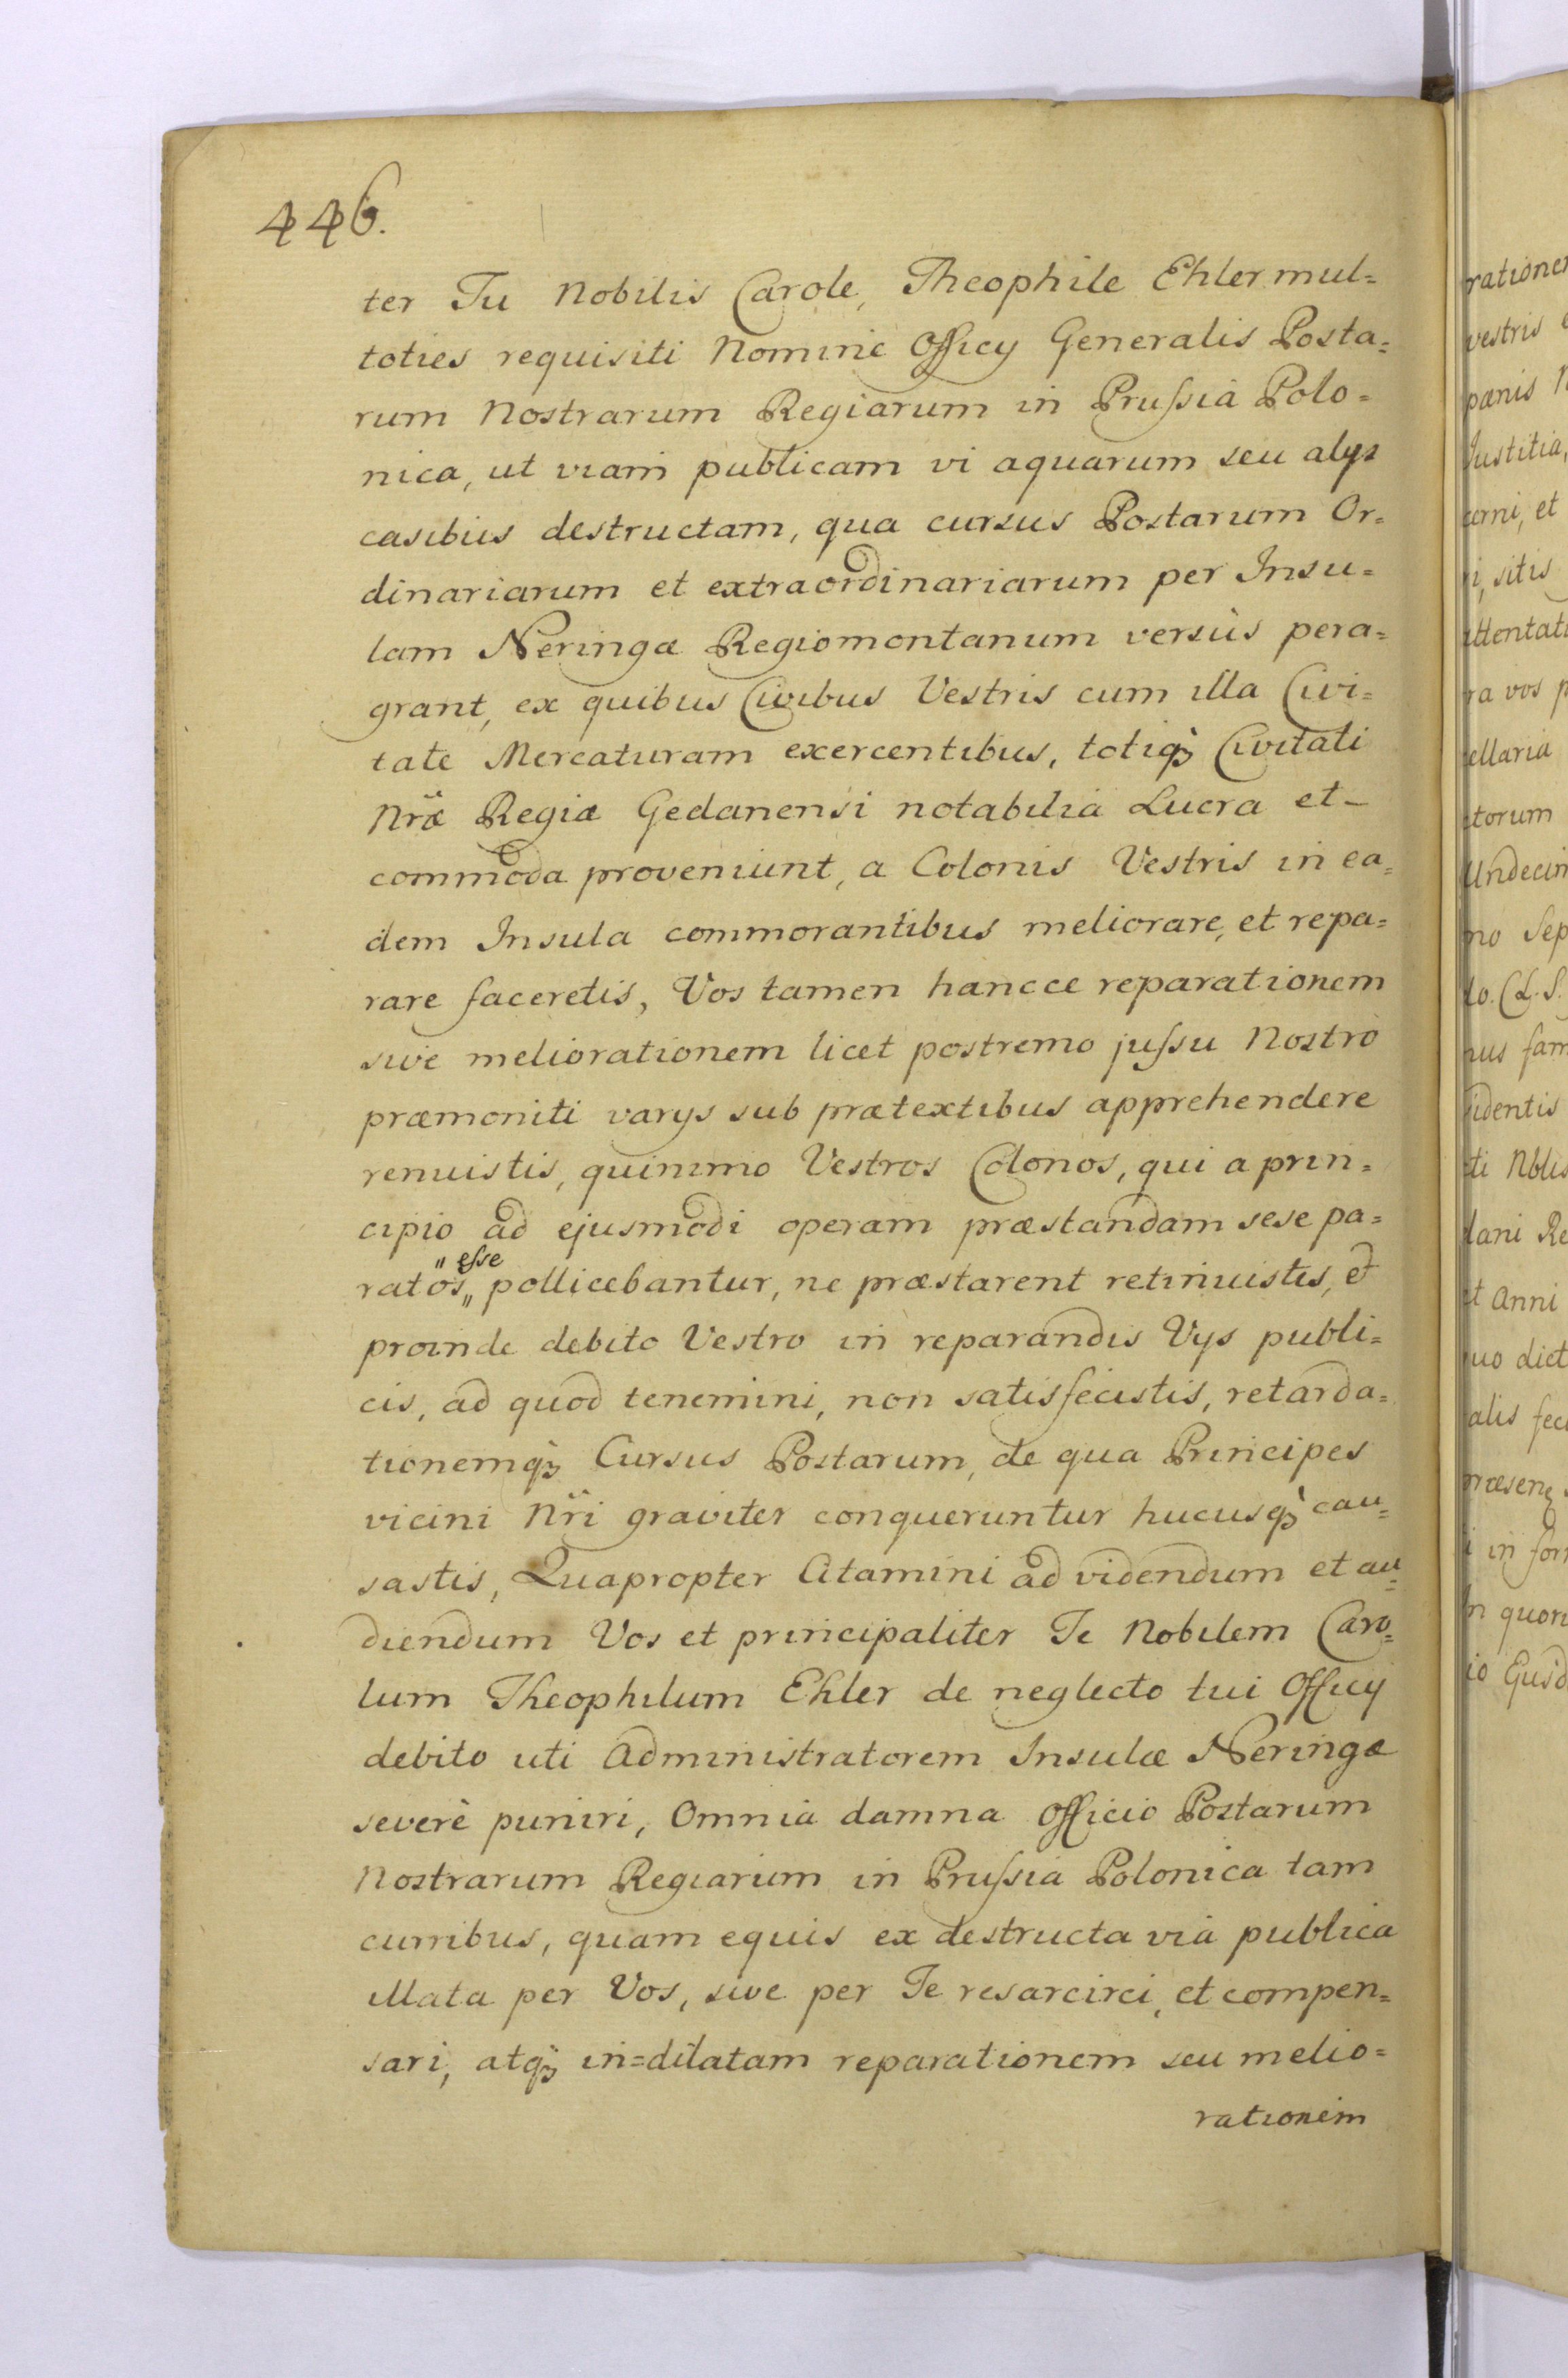 446.
ter Tu Nobilis Carole, Theophile Ehler mul=
toties requisiti Nomine Officy Generalis Posta=
rum Nostrarum Regiarum in Pruſsia Polo=
nica, ut viam publicam vi aquarum seu alys
casibus destructam, qua cursus Postarum Or=
dinariarum et extraordinariarum per Insu=
lam Neringæ Regiomontanum versùs pera=
grant, ex quibus Civibus Vestris cum illa Civi=
tate Mercaturam exercentibus, totiqꝫ Civitati
Nr̃æ Regiæ Gedanensi notabilia Lucra et-
commoda proveniunt, a Colonis Vestris in ea=
dem Insula commorantibus meliorare, et repa=
rare faceretis, Vos tamen hancce reparationem
sive meliorationem licet postremo juſsu Nostro
præmoniti varys sub prætextibus apprehendere
renuistis, quinimo Vestros Colonos, qui a prin=
cipio ad ejusmodi operam præstandam sese pa=
" eſse
ratos„ pollicebantur, ne præstarent retinuistis, et
proinde debito Vestro in reparandis Vys publi=
cis, ad quod tenemini, non satisfecistis, retarda=
tionemqꝫ Cursus Postarum, de qua Principes
vicini Nr̃i graviter conqueruntur hucusqꝫ cau=
sastis, Quapropter Citamini ad videndum et au=
diendum Vos et principaliter Te Nobilem Caro=
lum Theophilum Ehler de neglecto tui Officy
debito uti Administratorem Insulæ Neringæ
severè puniri, Omnia damna Officio Postarum
Nostrarum Regiarum in Pruſsia Polonica tam
curribus, quam equis ex destructa via publica
illata per Vos, sive per Te resarcirci, et compen=
sari, atqꝫ in=dilatam reparationem seu melio=
rationem
rationem
vestris
pænis
Justitia,
cerni, et
i, sitis
attentat
ra vos p
cellaria
torum
Undecim
mo Sep
do. (L.S.
nus fam
sidentis
ti Nblis
dani Re
et Anni
quo dict
alis fec
præsenꝫ
i in for
In quor
io Ejusd